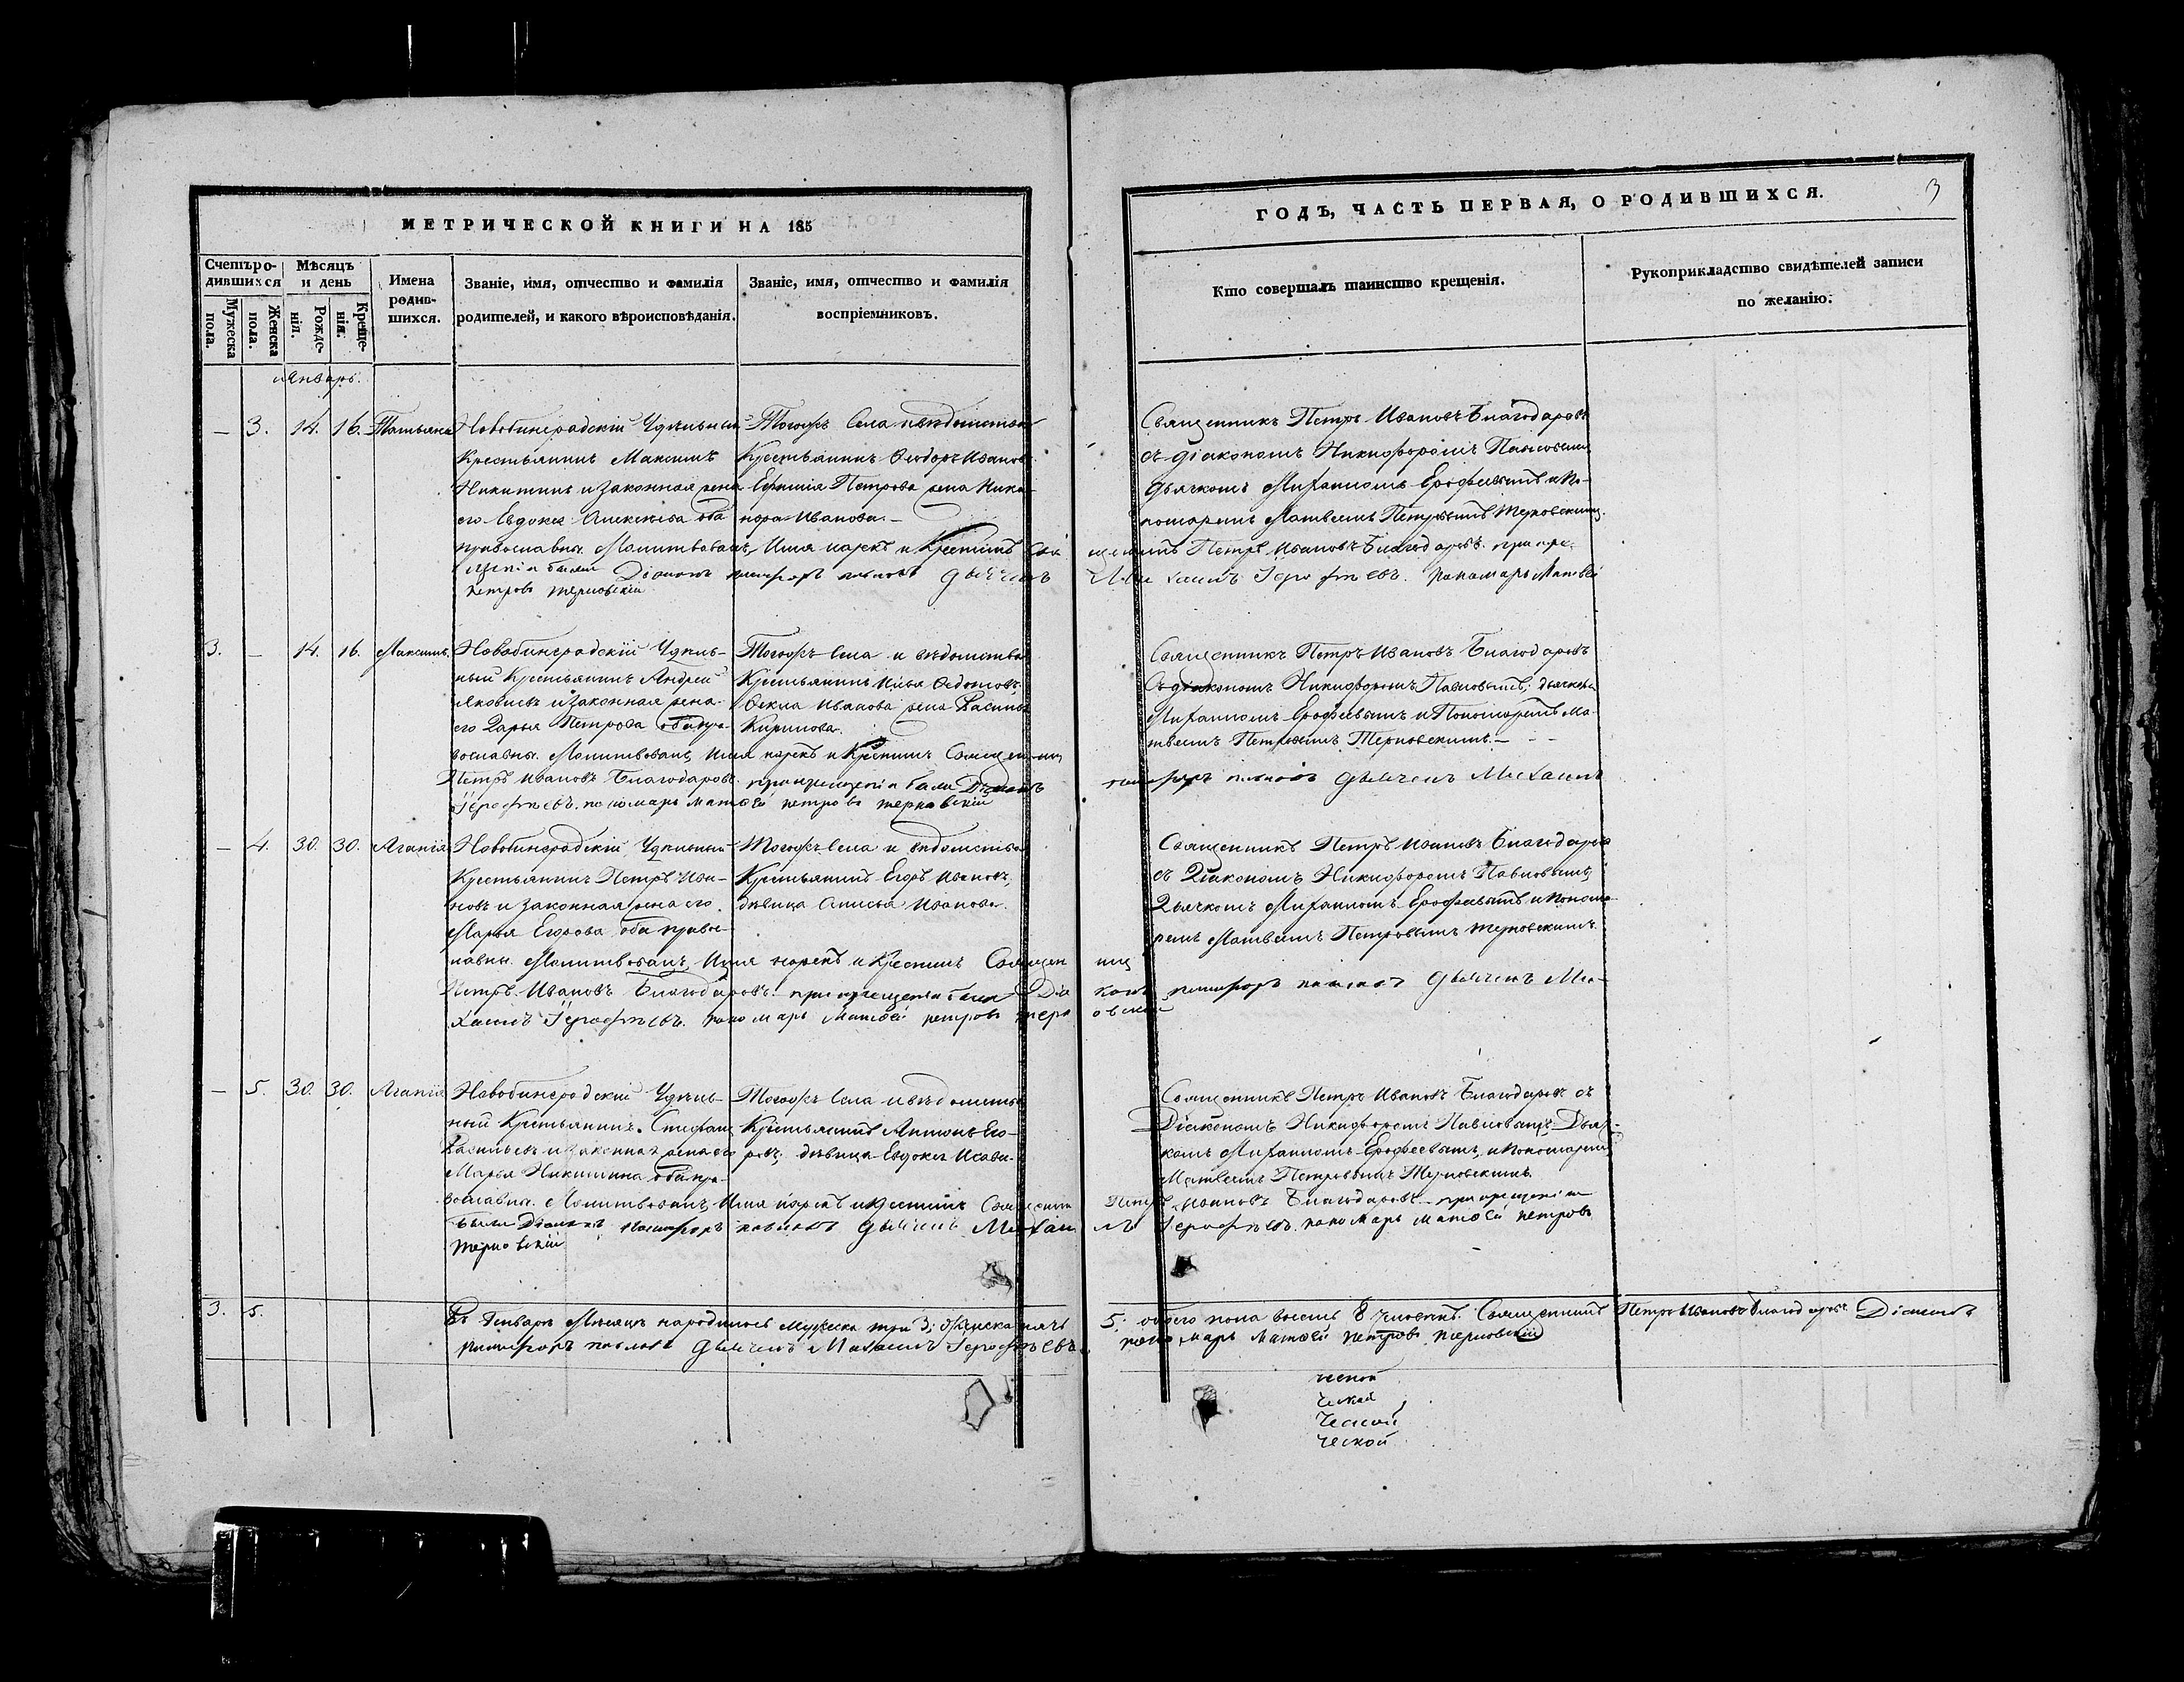 МЕТРИЧЕСКОЙ КНИГИ НА 185
Счетъ родившихся
Мужеска пола.
Женска пола.
Мѣсяцъ и день
Рожденія.
Крещенія.
Имена родившихся.
Званіе, имя, отчество и фамилія родителей, и какого вѣроисповѣданія.
Званіе, имя, отчество и фамилія воспріемниковъ.
ГОДЪ, ЧАСТЬ ПЕРВАЯ, О РОДИВШИХСЯ.
3
Кто совершалъ таинство крещенія.
Рукоприкладство свидѣтелей записи по желанію.
Январь.
— 3. 14. 16. Татьяна
Новобинерадскій Удѣльный
Крестьянинъ Максимъ
Никитинъ и законная жена
его Евдокея Алексѣева оба
православны. Молитвовалъ, Имя нарекъ и Крестилъ Свя
щеникъ Петръ Ивановъ Благодаровъ. при кре
щеніи были Діаконъ никифоръ павловъ дьячекъ
Михаилъ Іерофѣевъ. пономарь Матвей
петровъ терновскій
Тогожъ села и вѣдомства
Крестьянинъ Ѳеодоръ Ивановъ
Евфимія Петрова жена Ника-
нора Иванова.—
Священникъ Петръ Ивановъ Благодаровъ
съ діакономъ Никифоромъ Павловымъ
дьячкомъ Михаиломъ Ерофеевымъ и по-
номаремъ Матвеемъ Петровымъ Терновскимъ.
3. — 14. 16. Максимъ.
Новобинерадскій Удѣль-
ный Крестьянинъ Андрей
Яковлевъ и законная жена
его Дарья Петрова оба пра-
вославны. Молитвовалъ, Имя нарекъ и Крестилъ Священникъ
Петръ Ивановъ Благодаровъ. при крещеніи были Діаконъ
никифоръ павловъ дьячекъ Михаилъ
Іерофѣевъ. пономарь матвей петровъ терновскій
Тогожъ села и вѣдомства
Крестьянинъ Илья Ѳедотовъ,
Ѳекла Иванова жена Василья
Кирилова.
Священникъ Петръ Ивановъ Благодаровъ
съ діакономъ Никифоромъ Павловымъ, дьячкомъ
Михаиломъ Ерофеевымъ и Пономаремъ Ма-
твеемъ Петровымъ Терновскимъ.—
— 4. 30. 30. Агапія
Новобинерадскій Удѣльный
Крестьянинъ Петръ Ива-
новъ и законная жена его
Марья Егорова оба правос-
лавны. Молитвовалъ, Имя нарекъ и Крестилъ Священ ник
Петръ Ивановъ Благодаровъ. при крещеніи были Діа
конъ никифоръ павловъ дьячекъ Ми-
хаилъ Іерофѣевъ. пономарь Матвей петровъ терн овскій
Тогожъ села и вѣдомства
Крестьянинъ Егоръ Ивановъ,
дѣвица Анисья Иванова.
Священникъ Петръ Ивановъ Благодаровъ
съ Діакономъ Никифоромъ Павловымъ,
Дьячкомъ Михаиломъ Ерофеевымъ и понома-
ремъ Матвеемъ Петровымъ Терновскимъ.
— 5. 30. 30. Агапія
Новобинерадскій Удѣль-
ный Крестьянинъ Стефанъ
Васильевъ и законная жена его
Марья Никитина оба пра-
вославны. Молитвовалъ, Имя нарекъ и крестилъ Священникъ
Петръ Ивановъ Благодаровъ. при крещеніи
были Діаконъ никифоръ павловъ дьячекъ Михаи
лъ Іерофѣевъ. пономарь матвей петровъ
терновскій
Тогожъ села и вѣдомства
Крестьянинъ Антонъ Его-
ровъ, дѣвица Евдокея
Священникъ Петръ Ивановъ Благодаровъ съ
Діакономъ Никифоромъ Павловымъ Дьяч-
комъ Михаиломъ Ерофеевымъ, и пономаремъ
Матвеемъ Петровымъ Терновскимъ.
3. 5. Въ Генварѣ Месяцѣ народилось Мужеска три 3; Женска пять
5. обоего пола восемь 8 Человекъ. Священникъ Петръ Ивановъ Благодаровъ. Діаконъ
никифоръ павловъ дьячекъ Михаилъ Іерофѣевъ.
пономарь матвей петровъ терновскій
ческой
ческой
ческой
ческой